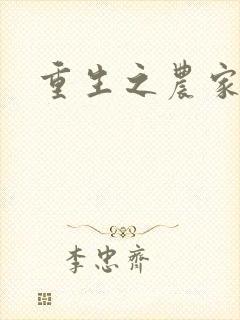 重生之農家
李忠齊